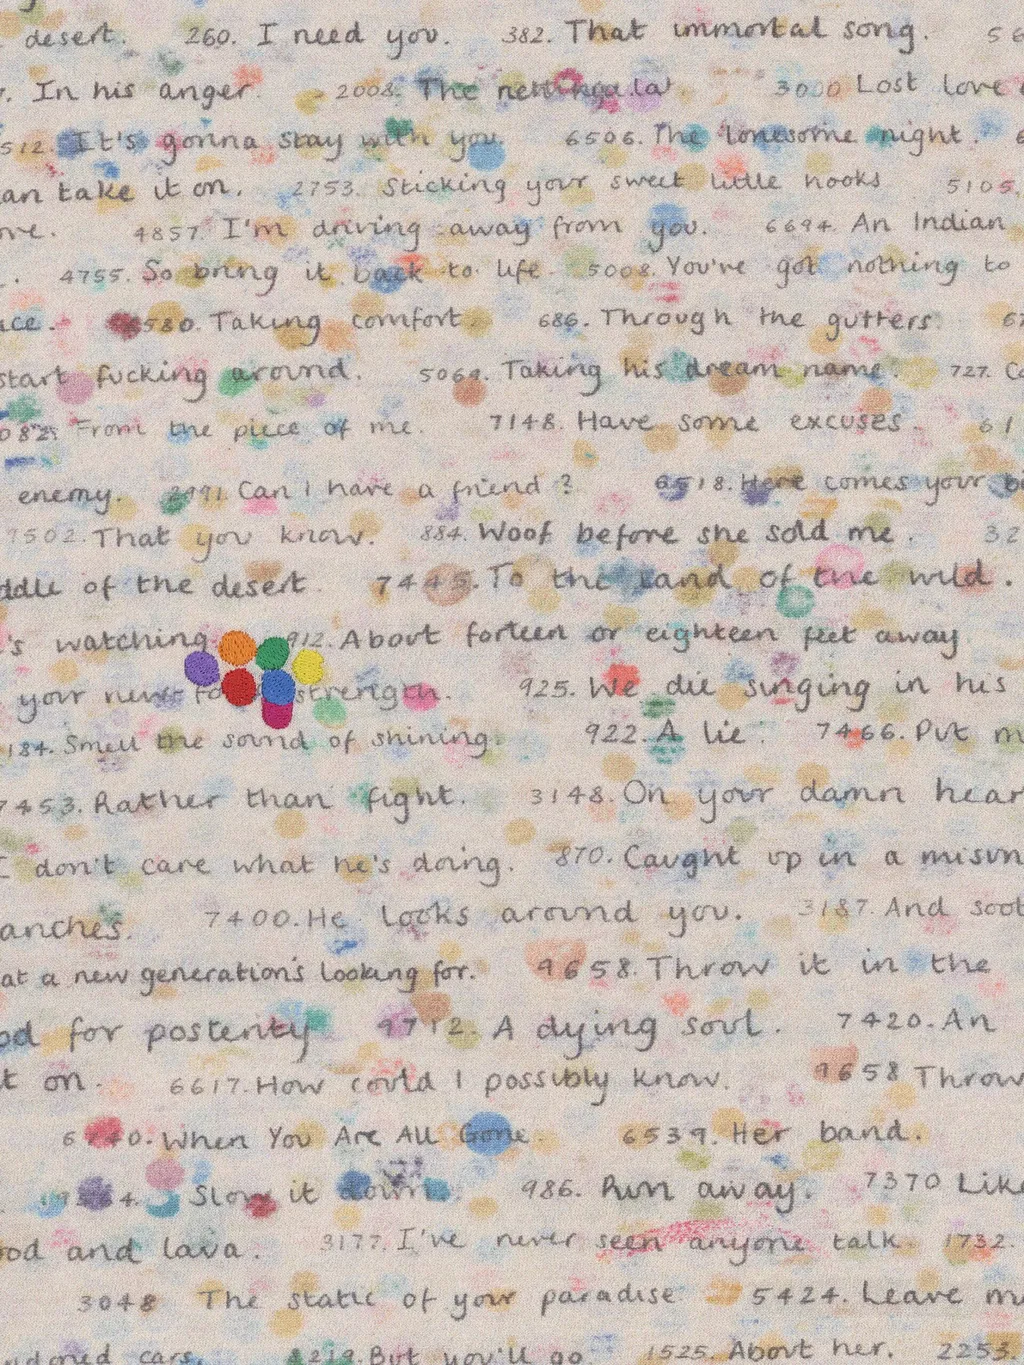 desert. 260. I need you. 382. That immortal song. 56
In his anger. 2008. The 3000 Lost love
512. It's gonna stay with you. 6506. The lonesome night. 6
an take it on. 2753. Sticking your sweet little hooks 5105.
ve. 4857. I'm driving away from you. 6694. An Indian
. 4755. So bring it back to life. 5008. You're got nothing to
ce. 6580. Taking comfort. 686. Through the gutters. 67
start fucking around. 5064. Taking his dream name. 727. Co
082. From the piece of me. 7148. Have some excuses. 61
enemy. 2991. Can I have a friend? 6518. Here comes your b
9502. That you know. 884. Woof before she sold me. 32
ddle of the desert. 7445. To the land of the wild.
's watching. 912. About forteen or eighteen feet away
your strength. 925. We die singing in his
184. Smell the sound of shining. 922. A lie. 7466. Put m
7453. Rather than fight. 3148. On your damn hear
I don't care what he's doing. 870. Caught up in a misun
anches. 7400. He looks around you. 3187. And soot
at a new generation's looking for. 9658. Throw it in the
od for posterity 9712. A dying soul. 7420. An
t on. 6617. How could I possibly know. 9658 Throw
6740. When You Are All Gone. 6539. Her band.
Slow it down. 986. Run away. 7370 Like
ood and lava. 3177. I've never seen anyone talk. 1732.
3048 The static of your paradise 5424. Leave m
doned cars. 8219. But you'll go 1525. About her. 2253.